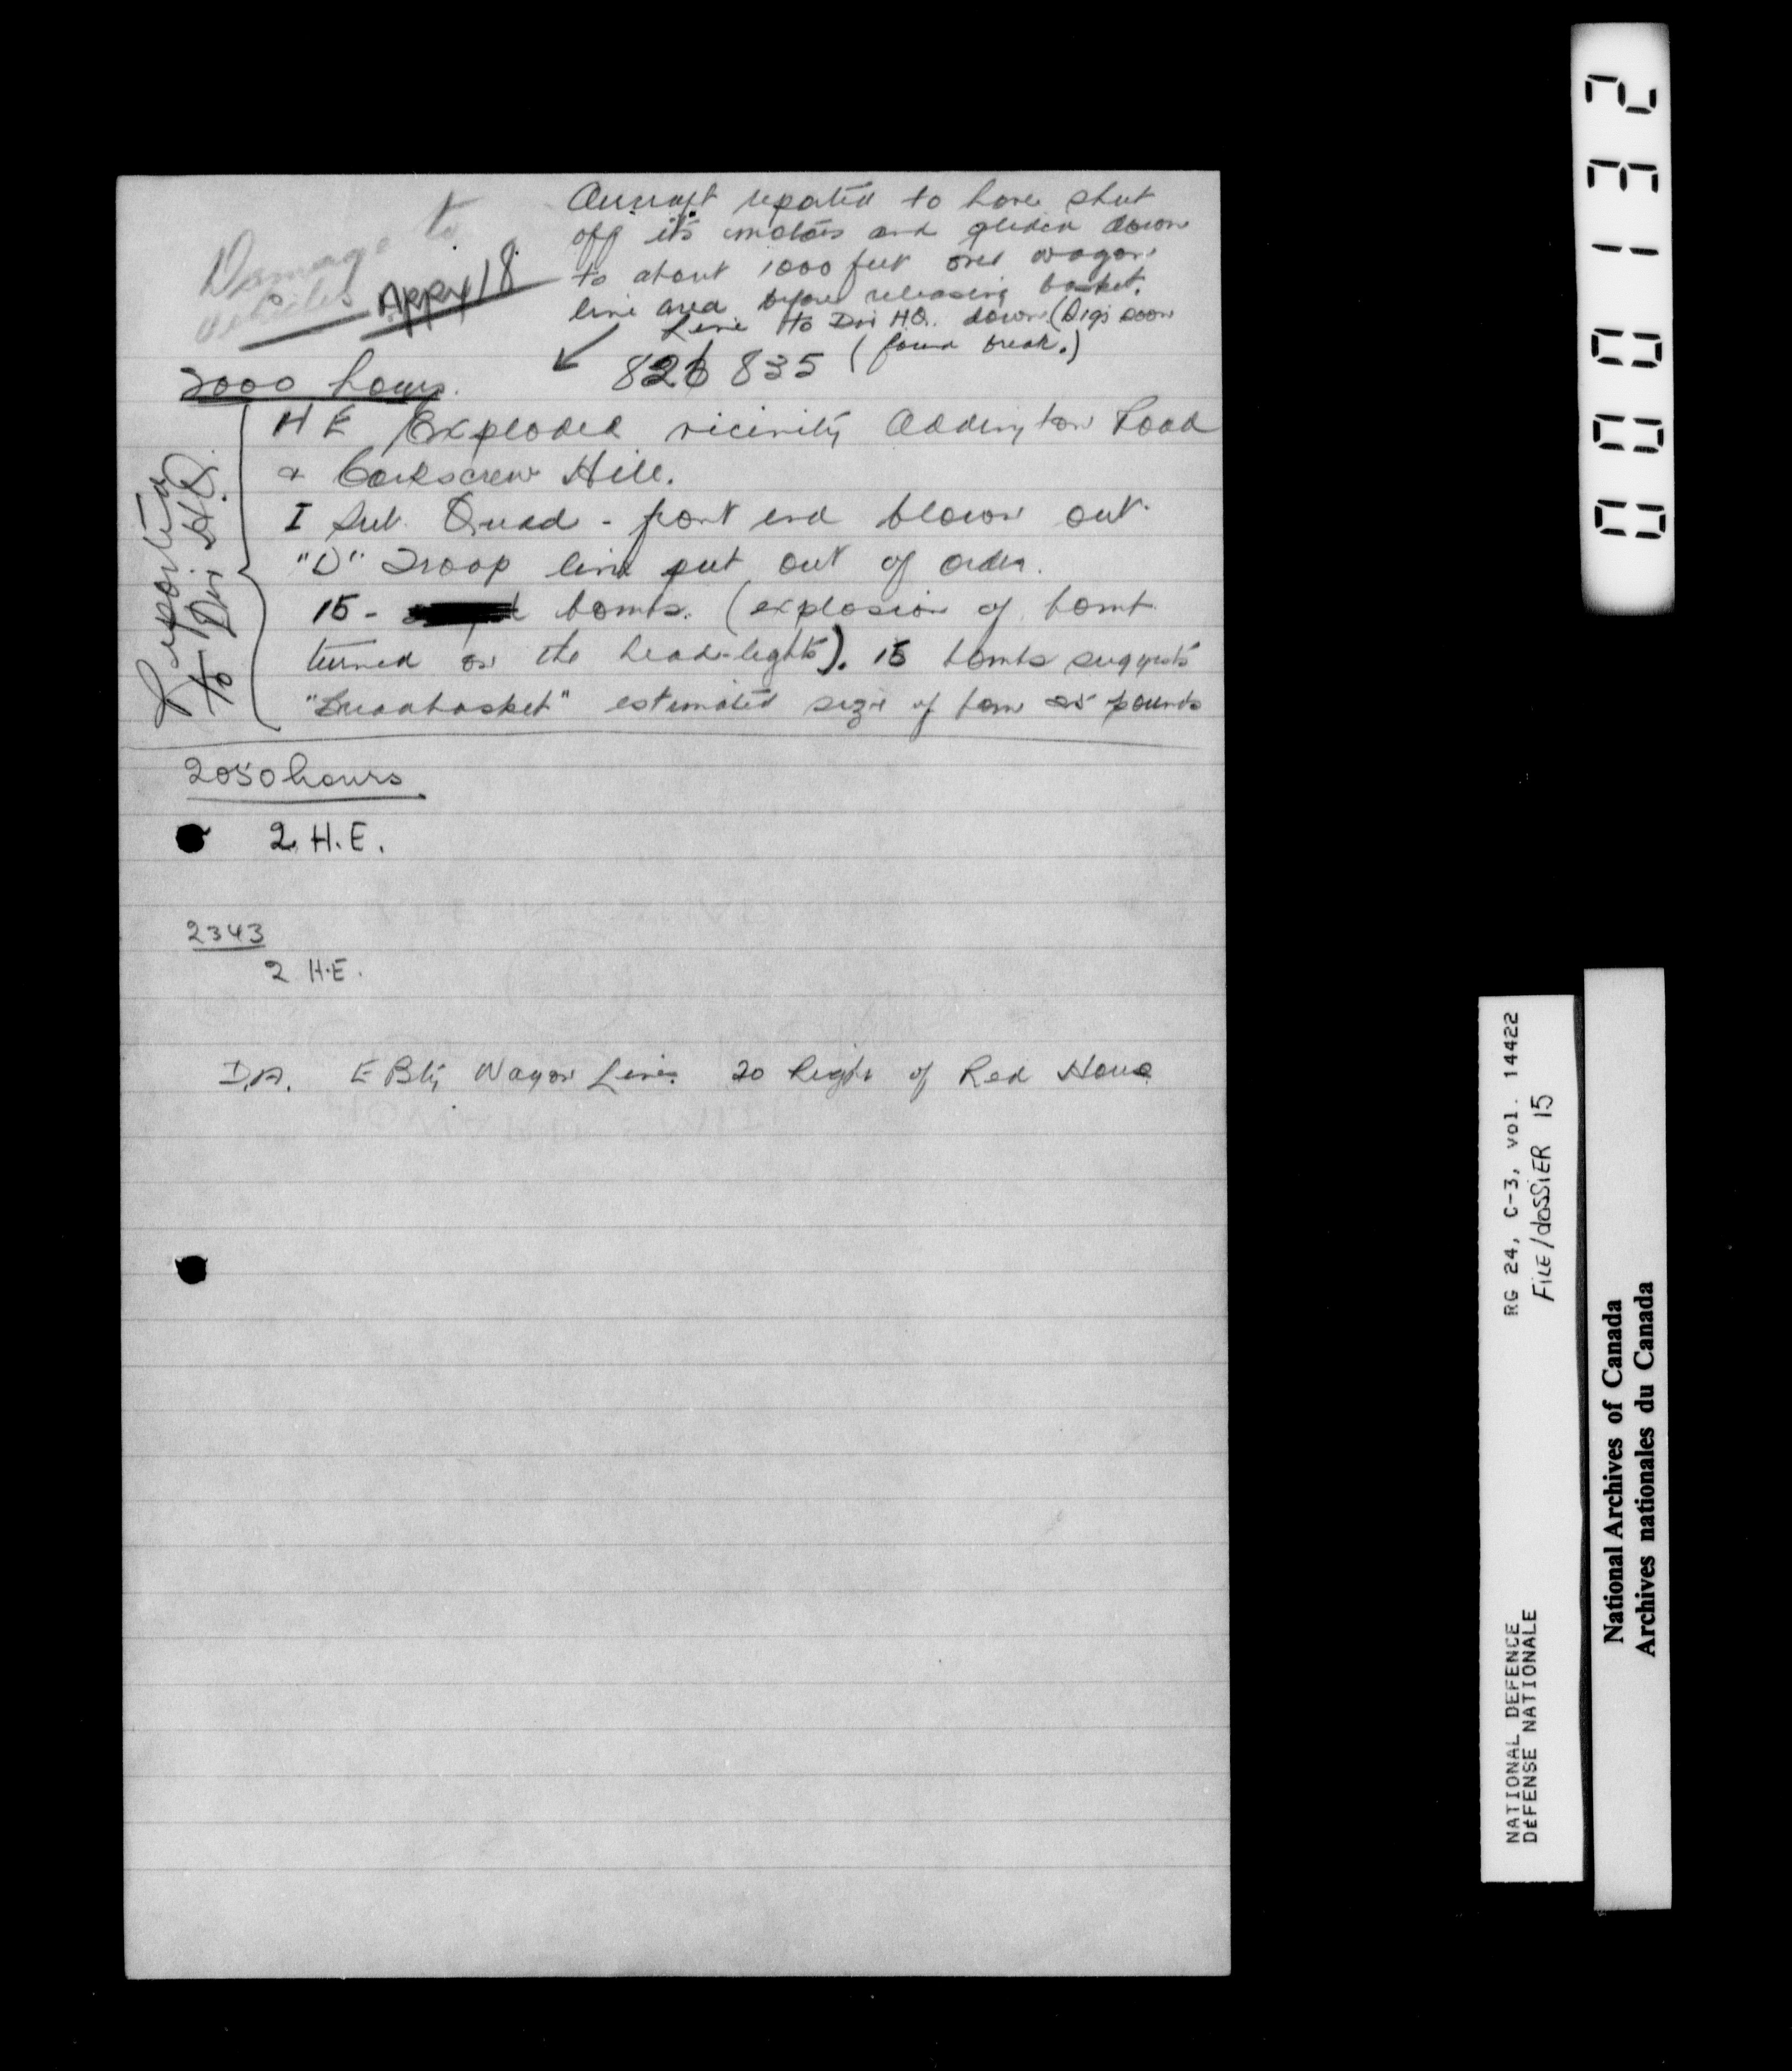 Damage to
vehicles
Appx 18
Aircraft reported to have shut
off its motors and glided down
to about 1000 feet over wagon
line area before releasing basket.
Line to Div HQ. down (Sigs soon
found break.)
826 835
2000 hours.
Reported
to Div H.Q.
H E Exploded vicinity Addington Road
& Corkscrew Hill.
I Sub. Quad - front end blown out.
"D" Troop line put out of order.
15 - bombs. (explosion of bomb
turned on the head-lights). 15 bombs suggests
"Breadbasket" estimated size of bomb 25 pounds
2050 hours
2 H.E.
2343
2 H.E.
D.A. E Bty Wagon Lines 20 Right of Red House
0000132
RG 24, C-3, vol. 14422
FILE/dossier 15
NATIONAL DEFENCE
DÉFENSE NATIONALE
National Archives of Canada
Archives nationales du Canada